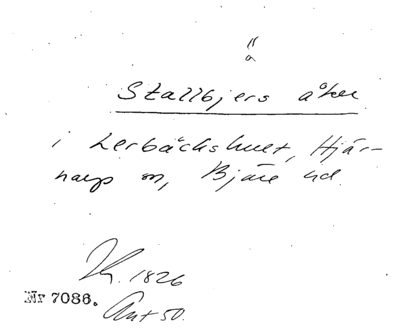 ä
Stallbjers åker
i Lerbäckshult, Hjär-
narp sn, Bjäre hd.
1826
Nr 7086.
Ant 50.